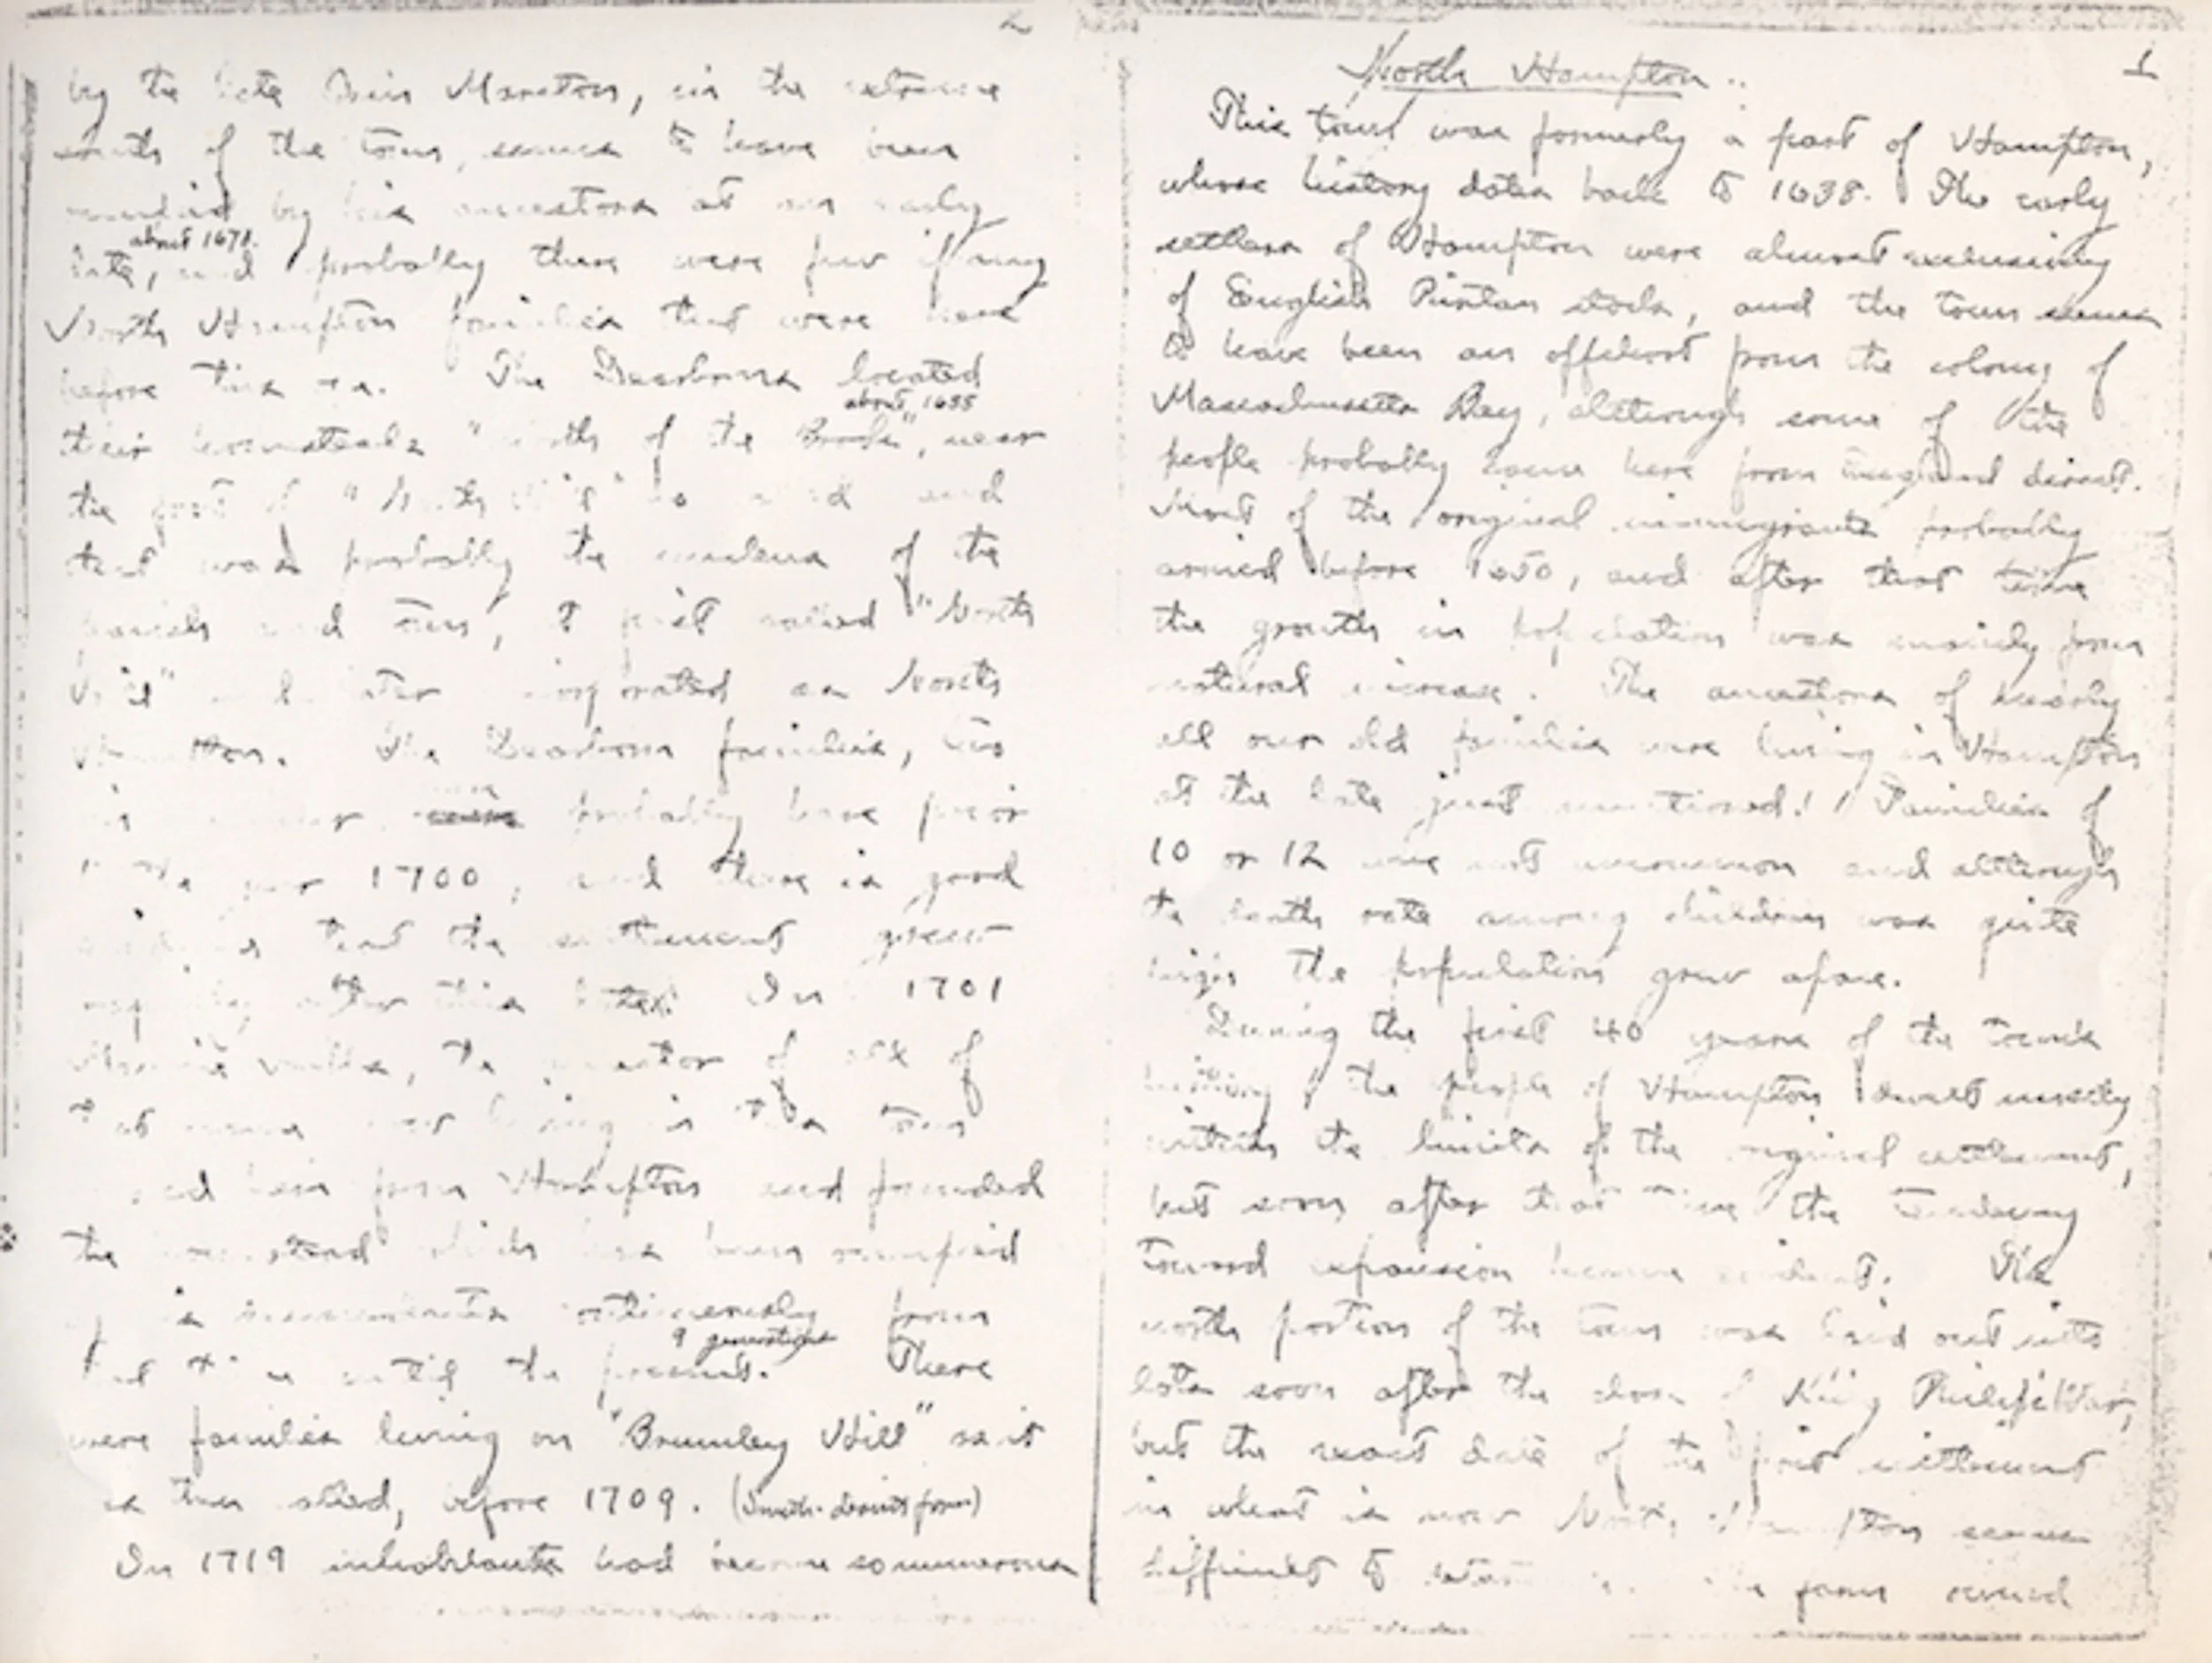 1
North Hampton
This town was formerly a part of Hampton,
whose history dates back to 1638. The early
settlers of Hampton were almost exclusively
of English Puritan stock, and the town seems
to have been an offshoot from the colony of
Massachusetts Bay, although some of the
people probably came here from England direct.
Most of the original immigrants probably
arrived before 1650, and after that time
the growth in population was mainly from
natural increase. The ancestors of nearly
all our old families were living in Hampton
at the date just mentioned. Families of
10 or 12 were not uncommon and although
the death rate among children was quite
high the population grew apace.
During the first 40 years of the town's
history the people of Hampton dwelt mostly
within the limits of the original settlement,
but soon after that time the tendency
toward expansion became evident. The
north portion of the town was laid out into
lots soon after the close of King Philip's War,
but the exact date of the first settlement
in what is now North Hampton seems
difficult to farm owned
2
by the late Marston, in the extreme
south of the town, seems to have been
occupied by his ancestors at an early
about 1678.
date, and probably there were few if any
North Hampton families that were here
before this The Dearborns located
about 1655
their homesteads "south of the Brook", near
the foot of "North Hill" so and
that was probably the nucleus of the
parish and town, at first called "North
Hill" and later incorporated as North
Hampton. The Dearborn families, two
probably here prior
to the year 1700, and there is good
evidence that the settlement grew
rapidly after this date. In 1701
the ancestor of all of
that name now living in this town
here from Hampton and founded
the homestead which has been occupied
by his descendants continuously from
9 generations
that time until the present. There
were families living on "Bromley Hill" as it
was then before 1709. (Smith-
In 1719 inhabitants had become so numerous